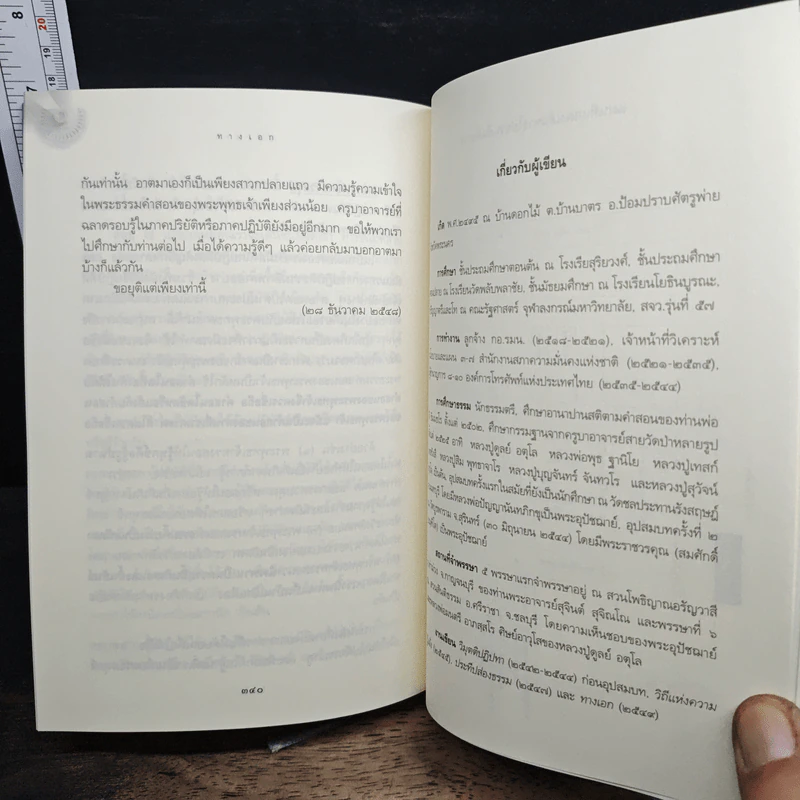 8
20
19
18
17
ทางเอก
กันเท่านั้น อาตมาเองก็เป็นเพียงสาวกปลายแถว มีความรู้ความเข้าใจ
ในพระธรรมคำสอนของพระพุทธเจ้าเพียงส่วนน้อย ครูบาอาจารย์ที่
ฉลาดรอบรู้ในภาคปริยัติหรือภาคปฏิบัติยังมีอยู่อีกมาก ขอให้พวกเรา
ไปศึกษากับท่านต่อไป เมื่อได้ความรู้ดีๆ แล้วค่อยกลับมาบอกอาตมา
บ้างก็แล้วกัน
ขอยุติแต่เพียงเท่านี้
(๒๘ ธันวาคม ๒๕๔๘)
๓๔๐
เกี่ยวกับผู้เขียน
เกิด พ.ศ.๒๔๙๕ ณ บ้านดอกไม้ ต.บ้านบาตร อ.ป้อมปราบศัตรูพ่าย
การศึกษา ชั้นประถมศึกษาตอนต้น ณ โรงเรียสุริยวงศ์, ชั้นประถมศึกษา
ณ โรงเรียนวัดพลับพลาชัย, ชั้นมัธยมศึกษา ณ โรงเรียนโยธินบูรณะ,
ณ คณะรัฐศาสตร์ จุฬาลงกรณ์มหาวิทยาลัย, สจว.รุ่นที่ ๕๗
การทำงาน ลูกจ้าง กอ.รมน. (๒๕๑๘-๒๕๒๑), เจ้าหน้าที่วิเคราะห์
๓-๗ สำนักงานสภาความมั่นคงแห่งชาติ (๒๕๒๑-๒๕๓๕),
๘-๑๐ องค์การโทรศัพท์แห่งประเทศไทย (๒๕๓๕-๒๕๔๔)
การศึกษาธรรม นักธรรมตรี, ศึกษาอานาปานสติตามคำสอนของท่านพ่อ
ตั้งแต่ ๒๕๐๒, ศึกษากรรมฐานจากครูบาอาจารย์สายวัดป่าหลายรูป
๒๕๒๕ อาทิ หลวงปู่ดูลย์ อตุโล หลวงพ่อพุธ ฐานิโย หลวงปู่เทสก์
หลวงปู่สิม พุทธาจาโร หลวงปู่บุญจันทร์ จันทวโร และหลวงปู่สุวัจน์
เป็นต้น, อุปสมบทครั้งแรกในสมัยที่ยังเป็นนักศึกษา ณ วัดชลประทานรังสฤษฎ์
โดยมีหลวงพ่อปัญญานันทภิกขุเป็นพระอุปัชฌาย์, อุปสมบทครั้งที่ ๒
จ.สุรินทร์ (๓๐ มิถุนายน ๒๕๔๔) โดยมีพระราชวรคุณ (สมศักดิ์
เป็นพระอุปัชฌาย์
สถานที่จำพรรษา ๕ พรรษาแรกจำพรรษาอยู่ ณ สวนโพธิญาณอรัญวาสี
จ.กาญจนบุรี ของท่านพระอาจารย์สุจินต์ สุจิณโณ และพรรษาที่ ๖
อ.ศรีราชา จ.ชลบุรี โดยความเห็นชอบของพระอุปัชฌาย์
อาภสฺสโร ศิษย์อาวุโสของหลวงปู่ดูลย์ อตุโล
งานเขียน วิมุตติปฏิปทา (๒๕๔๒-๒๕๔๔) ก่อนอุปสมบท, วิถีแห่งความ
(๒๕๔๕), ประทีปส่องธรรม (๒๕๔๗) และ ทางเอก (๒๕๔๙)